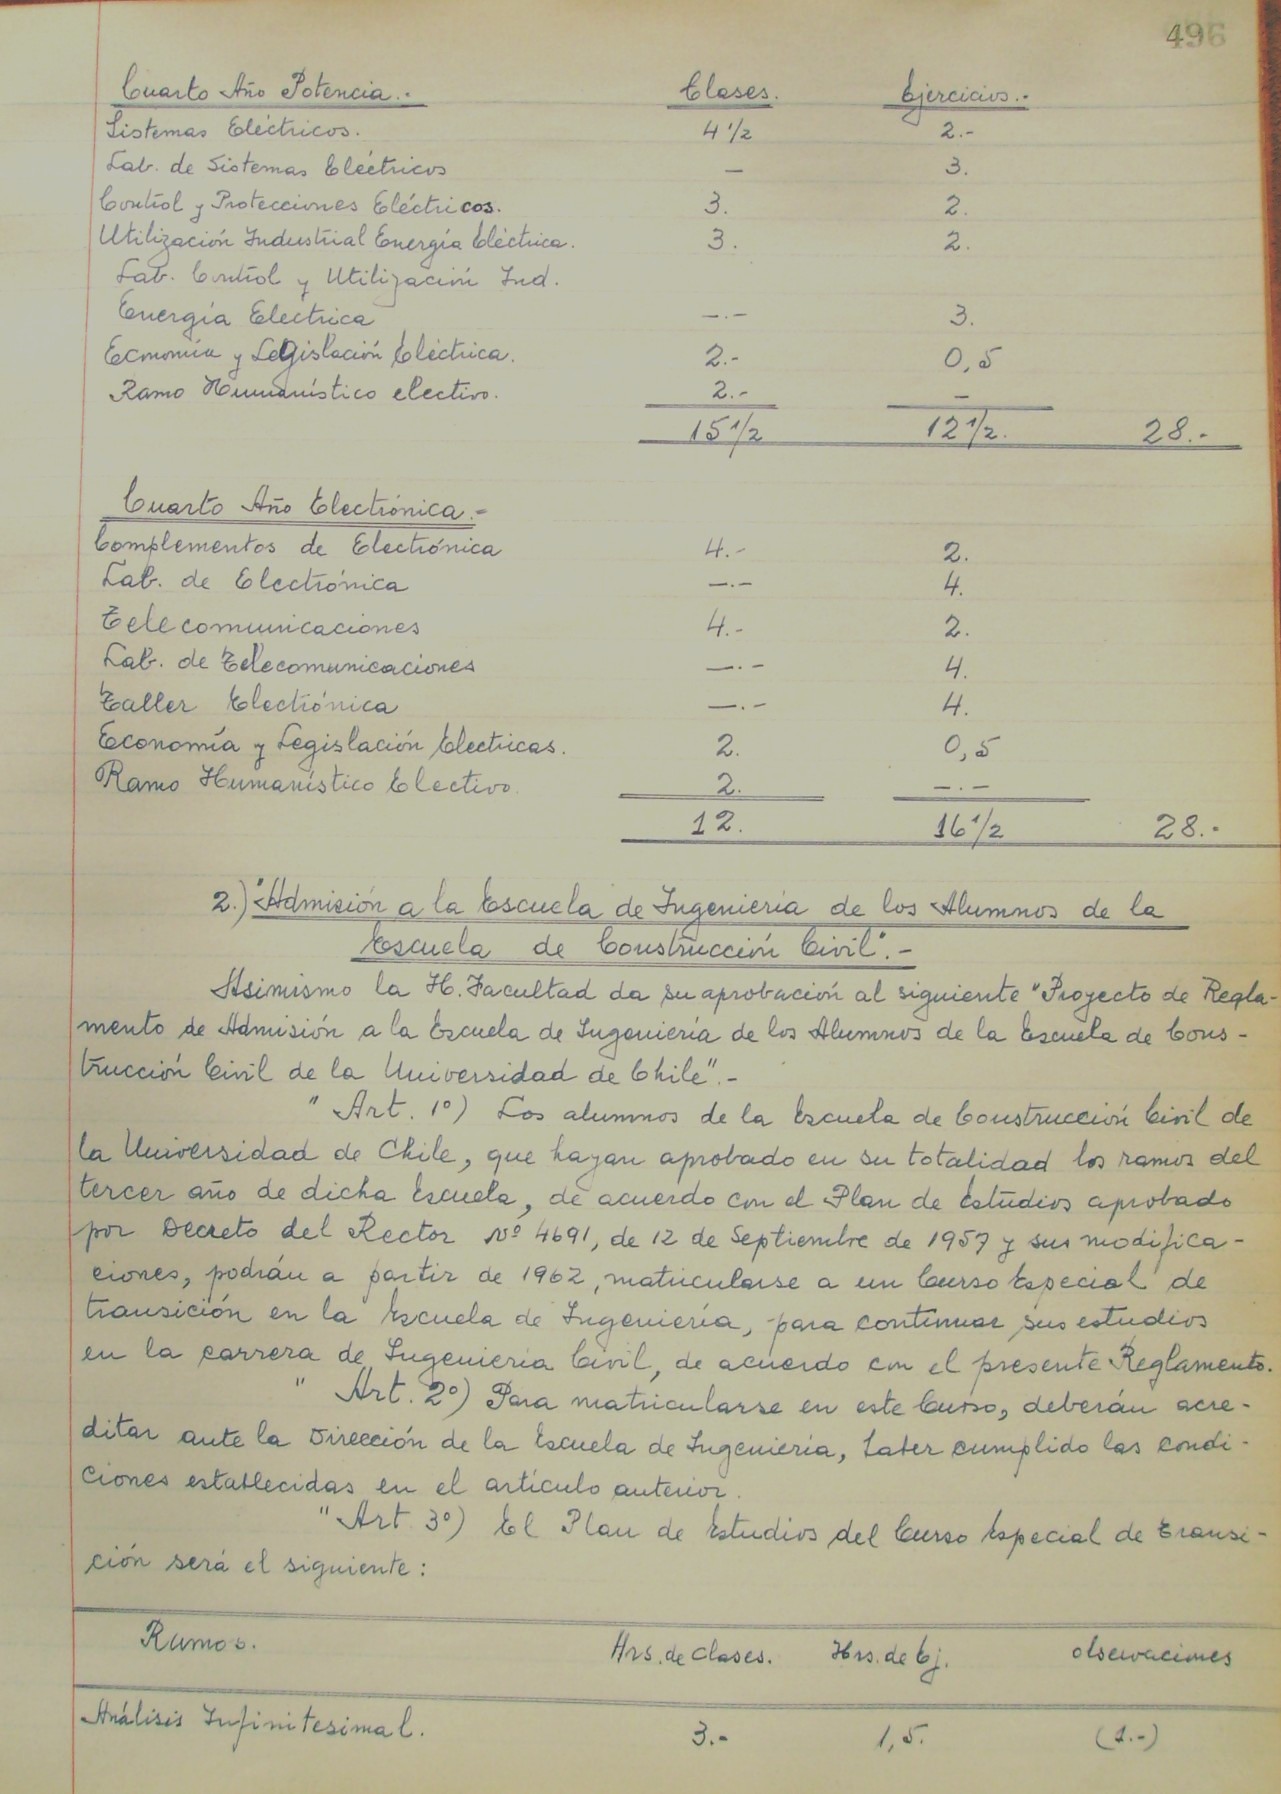 496
Cuarto Año Potencia.- Clases. Ejercicios.-
Sistemas Eléctricos. 4 1/2 2.-
Lab. de Sistemas Eléctricos — 3.
Control y Protecciones Eléctricos. 3. 2.
Utilización Industrial Energía Eléctrica. 3. 2.
Lab. Control y Utilización Ind.
Energía Electrica —.— 3.
Economía y Legislación Eléctrica. 2.- 0,5
Ramo Humanístico electivo. 2.- —
15 1/2 12 1/2. 28.-
Cuarto Año Electrónica.-
Complementos de Electrónica 4.- 2.
Lab. de Electrónica —.— 4.
Telecomunicaciones 4.- 2.
Lab. de Telecomunicaciones —.— 4.
Taller Electrónica —.— 4.
Economía y Legislación Electricas. 2. 0,5
Ramo Humanístico Electivo. 2. —.—
12. 16 1/2 28.-
2.) "Admisión a la Escuela de Ingeniería de los Alumnos de la
Escuela de Construcción Civil".-
Asimismo la H. Facultad da su aprobación al siguiente "Proyecto de Regla-
mento de Admisión a la Escuela de Ingeniería de los Alumnos de la Escuela de Cons-
trucción Civil de la Universidad de Chile".-
" Art. 1º) Los alumnos de la Escuela de Construcción Civil de
la Universidad de Chile, que hayan aprobado en su totalidad los ramos del
tercer año de dicha Escuela, de acuerdo con el Plan de Estudios aprobado
por Decreto del Rector Nº 4691, de 12 de Septiembre de 1957 y sus modifica-
ciones, podrán a partir de 1962, matricularse a un Curso Especial de
transición en la Escuela de Ingeniería, para continuar sus estudios
en la carrera de Ingeniería Civil, de acuerdo con el presente Reglamento.
" Art. 2º) Para matricularse en este Curso, deberán acre-
ditar ante la Dirección de la Escuela de Ingeniería, haber cumplido las condi-
ciones establecidas en el artículo anterior.
" Art. 3º) El Plan de Estudios del Curso Especial de transi-
ción será el siguiente:
Ramos. Hrs. de Clases. Hrs. de Ej. observaciones
Análisis Infinitesimal. 3.- 1,5. (1.-)